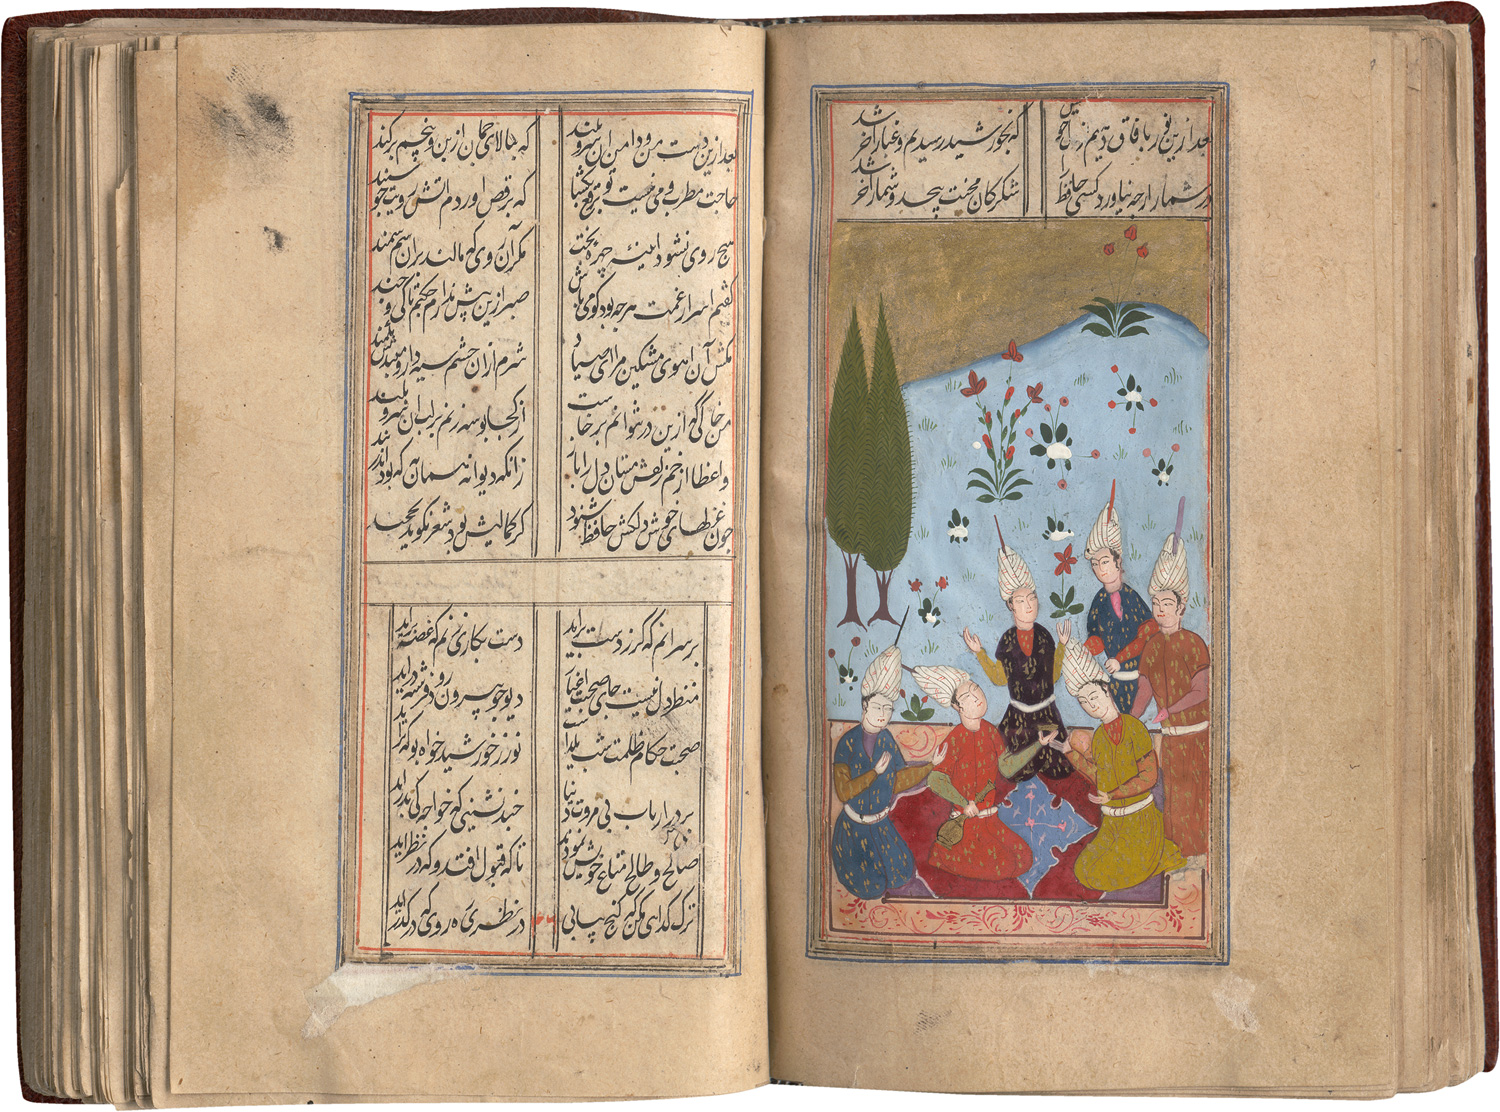 بعد ازین نور بافاق دهیم از دل خویش که بخورشید رسیدیم و غبار آخر شد
در شمار ارچه نیاورد کسی حافظ را شکر کان محنت بیحد و شمار آخر شد
بعد ازین دست من و دامن آن سرو بلند که ببالای چمان از بن و بیخم برکند
حاجت مطرب و می نیست تو برقع بکشا که برقص آوردم آتش رویت چو سپند
هیچ روی نشود آینه چهره بخت مگر آن روی که مالند بر آن سم سمند
گفتم اسرار غمت هرچه بود گو می باش صبر ازین بیش ندارم چکنم تا کی و چند
مکش آن آهوی مشکین مرا ای صیاد شرم از آن چشم سیه دار و مبندش بکمند
من خاکی که ازین در نتوانم برخاست از کجا بوسه زنم بر لب آن سرو بلند
واعظا از خم زلفش مستان دل را باز زانکه دیوانه همان به که بود اندر بند
چون غزلهای خوش دلکش حافظ شنود گر کمالیش بود شعر نگوید بخجند
بر سر آنم که گر ز دست برآید دست بکاری زنم که غصه سرآید
منظر دل نیست جای صحبت اغیار دیو چو بیرون رود فرشته درآید
صحبت حکام ظلمت شب یلداست نور ز خورشید خواه بو که برآید
بر در ارباب بی مروت دنیا چند نشینی که خواجه کی بدرآید
صالح و طالح متاع خویش نمودند تا که قبول افتد و که در نظر آید
ترک گدای مکن که گنج بیابی در نظری ره روی که در گذر آید